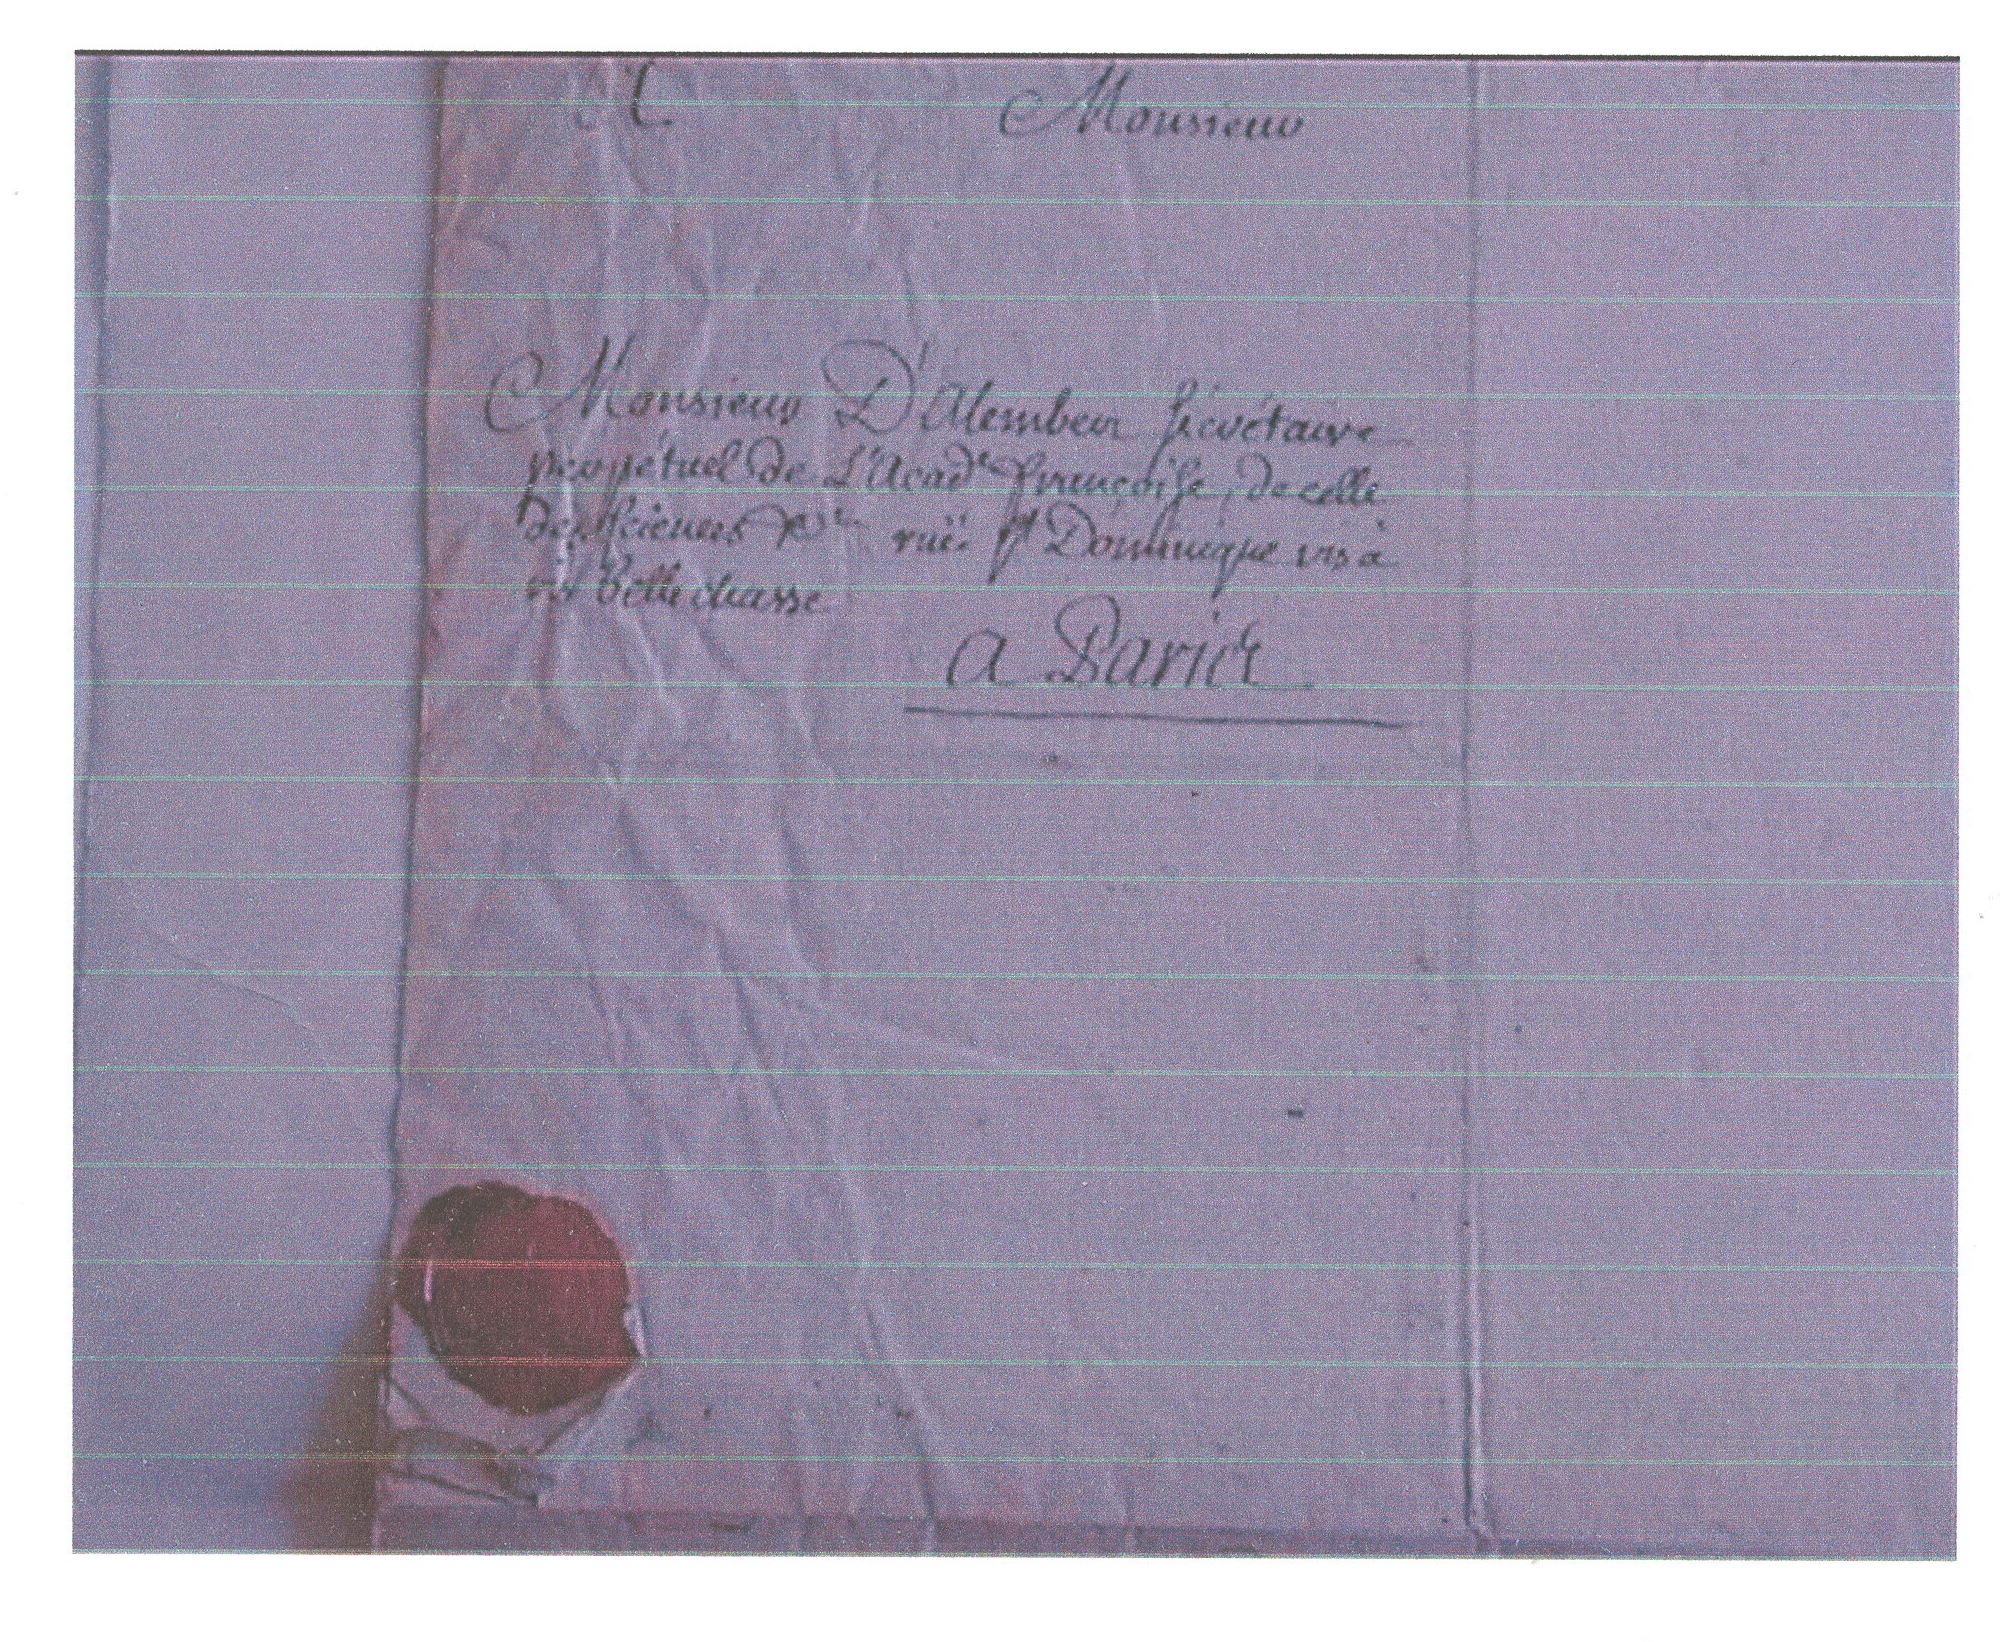 A Monsieur
Monsieur D'Alembert Sécrétaire
perpétuel de L'Acad.e Françoise, de celle
des Sciences &c.a rüe St Dominique vis à
vis Bellechasse
A Paris